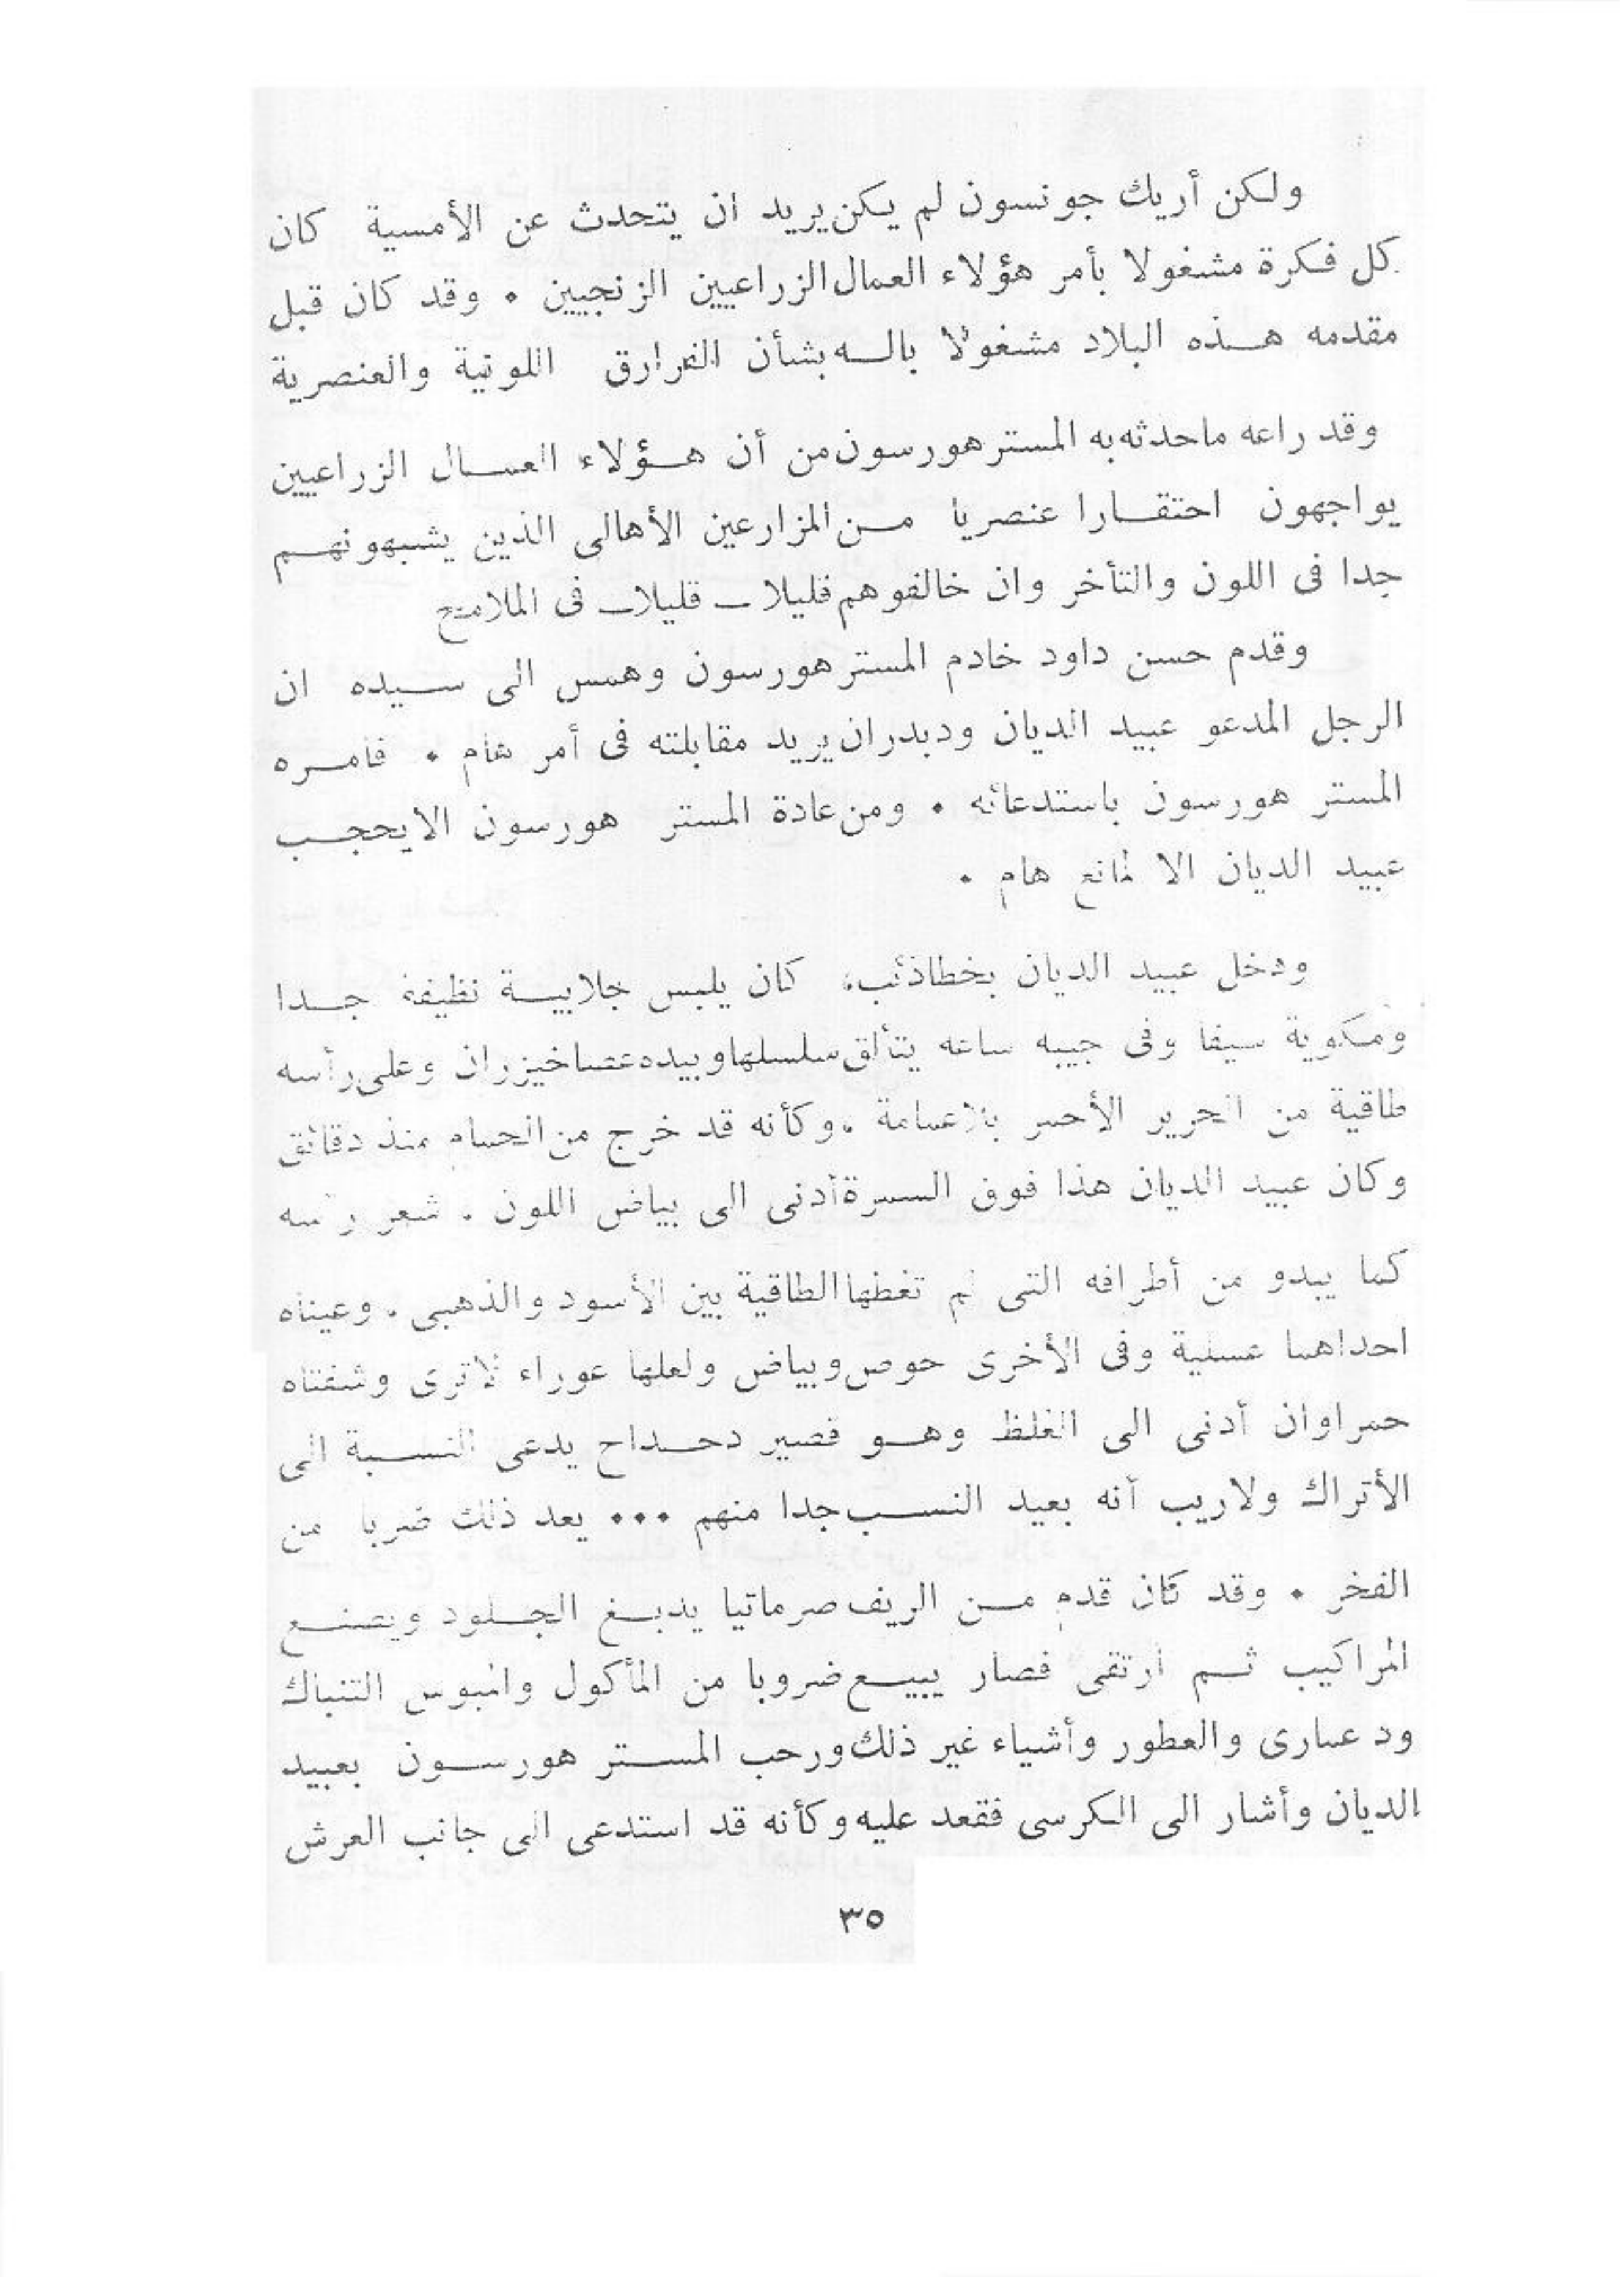 ولكن أريك جونسون لم يكن يريد ان يتحدث عن الأمسية كان
كل فكرة مشغولا بأمر هؤلاء العمال الزراعيين الزنجيين . وقد كان قبل
مقدمه هذه البلاد مشغولا باله بشأن الفوارق اللونية والعنصرية
وقد راعه ماحدثه به المستر هورسون من أن هؤلاء العمال الزراعيين
يواجهون احتقارا عنصريا من المزارعين الأهالى الذين يشبهونهم
جدا فى اللون والتأخر وان خالفوهم قليلا ــ قليلا ــ فى الملامح
وقدم حسن داود خادم المستر هورسون وهمس الى سيده ان
الرجل المدعو عبيد الديان ودبدران يريد مقابلته فى أمر هام . فامره
المستر هورسون باستدعائه . ومن عادة المستر هورسون الايحجب
عبيد الديان الا لمانع هام .
ودخل عبيد الديان بخطا كان يلبس جلابية نظيفة جدا
ومكوية سيفا وفى جيبه ساعه يتألق سلسلها وبيده عصا خيزران وعلى رأسه
طاقية من الحرير الأحمر بلا عمامة . وكأنه قد خرج من الحمام منذ دقائق
وكان عبيد الديان هذا فوق السمرة أدنى الى بياض اللون . شعر رأسه
كما يبدو من أطرافه التى لم تغطها الطاقية بين الأسود والذهبى . وعيناه
احداهما عسلية وفى الأخرى حوص وبياض ولعلها عوراء لاترى وشفتاه
حمراوان أدنى الى الغلظ وهو قصير دحداح يدعى النسبة الى
الأتراك ولاريب أنه بعيد النسب جدا منهم ... يعد ذلك ضربا من
الفخر . وقد كان قدم من الريف صرماتيا يدبغ الجلود ويصنع
المراكيب ثم ارتقى فصار يبيع ضروبا من المأكول والملبوس التنباك
ود عمارى والعطور وأشياء غير ذلك ورحب المستر هورسون بعبيد
الديان وأشار الى الكرسى فقعد عليه وكأنه قد استدعى الى جانب العرش
٣٥